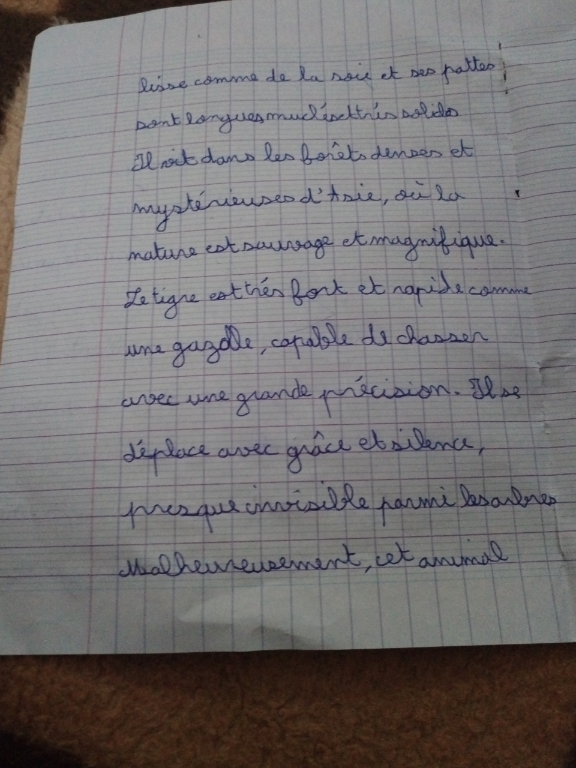 lisse comme de la soie et ses pattes
sont longues muclés et très solides
Il vit dans les forêts denses et
mystérieuses d'Asie, où la
nature est sauvage et magnifique.
Le tigre est très fort et rapide comme
une gazelle, capable de chasser
avec une grande précision. Il se
déplace avec grâce et silence,
presque invisible parmi les arbres
Malheureusement, cet animal